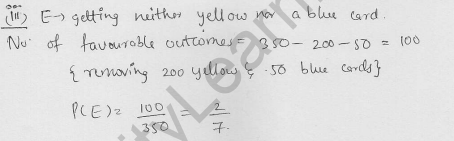 (iii) E → getting neither yellow nor a blue card.
No. of favourable outcomes = 350 - 200 - 50 = 100
{ removing 200 yellow & 50 blue cards}
P(E) = 100/350 = 2/7.